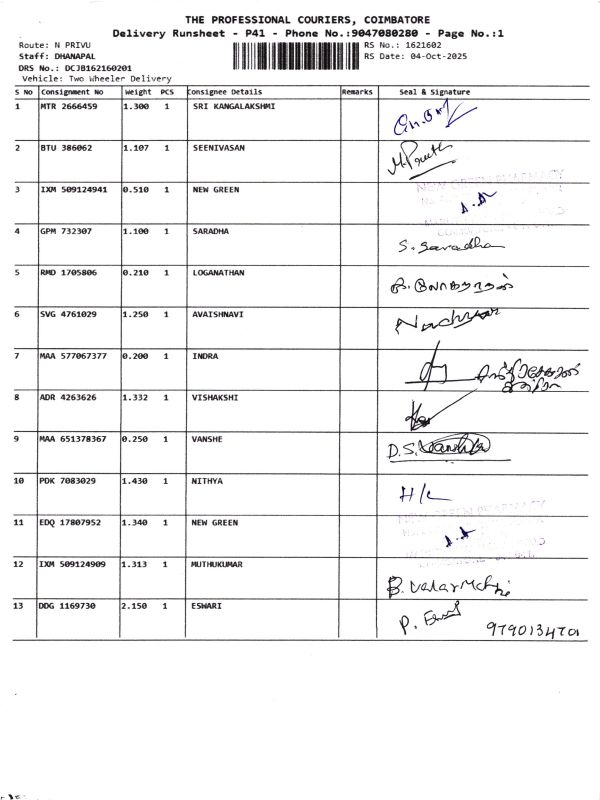 THE PROFESSIONAL COURIERS, COIMBATORE
Delivery Runsheet - P41 - Phone No.:9047080280 - Page No.:1
Route: N PRIVU RS No.: 1621602
Staff: DHANAPAL RS Date: 04-Oct-2025
DRS No.: DCJB162160201
Vehicle: Two Wheeler Delivery
S No Consignment No Weight PCS Consignee Details Remarks Seal & Signature
1 MTR 2666459 1.300 1 SRI KANGALAKSHMI
2 BTU 386062 1.107 1 SEENIVASAN
3 IXM 509124941 0.510 1 NEW GREEN NEW GREEN PHARMACY
4 GPM 732307 1.100 1 SARADHA S. Saradha
5 RMD 1705806 0.210 1 LOGANATHAN
6 SVG 4761029 1.250 1 AVAISHNAVI
7 MAA 577067377 0.200 1 INDRA
8 ADR 4263626 1.332 1 VISHAKSHI
9 MAA 651378367 0.250 1 VANSHE D.S.
10 PDK 7083029 1.430 1 NITHYA H/L
11 EDQ 17807952 1.340 1 NEW GREEN NEW GREEN PHARMACY
12 IXM 509124909 1.313 1 MUTHUKUMAR
13 DDG 1169730 2.150 1 ESWARI P. 9790134701